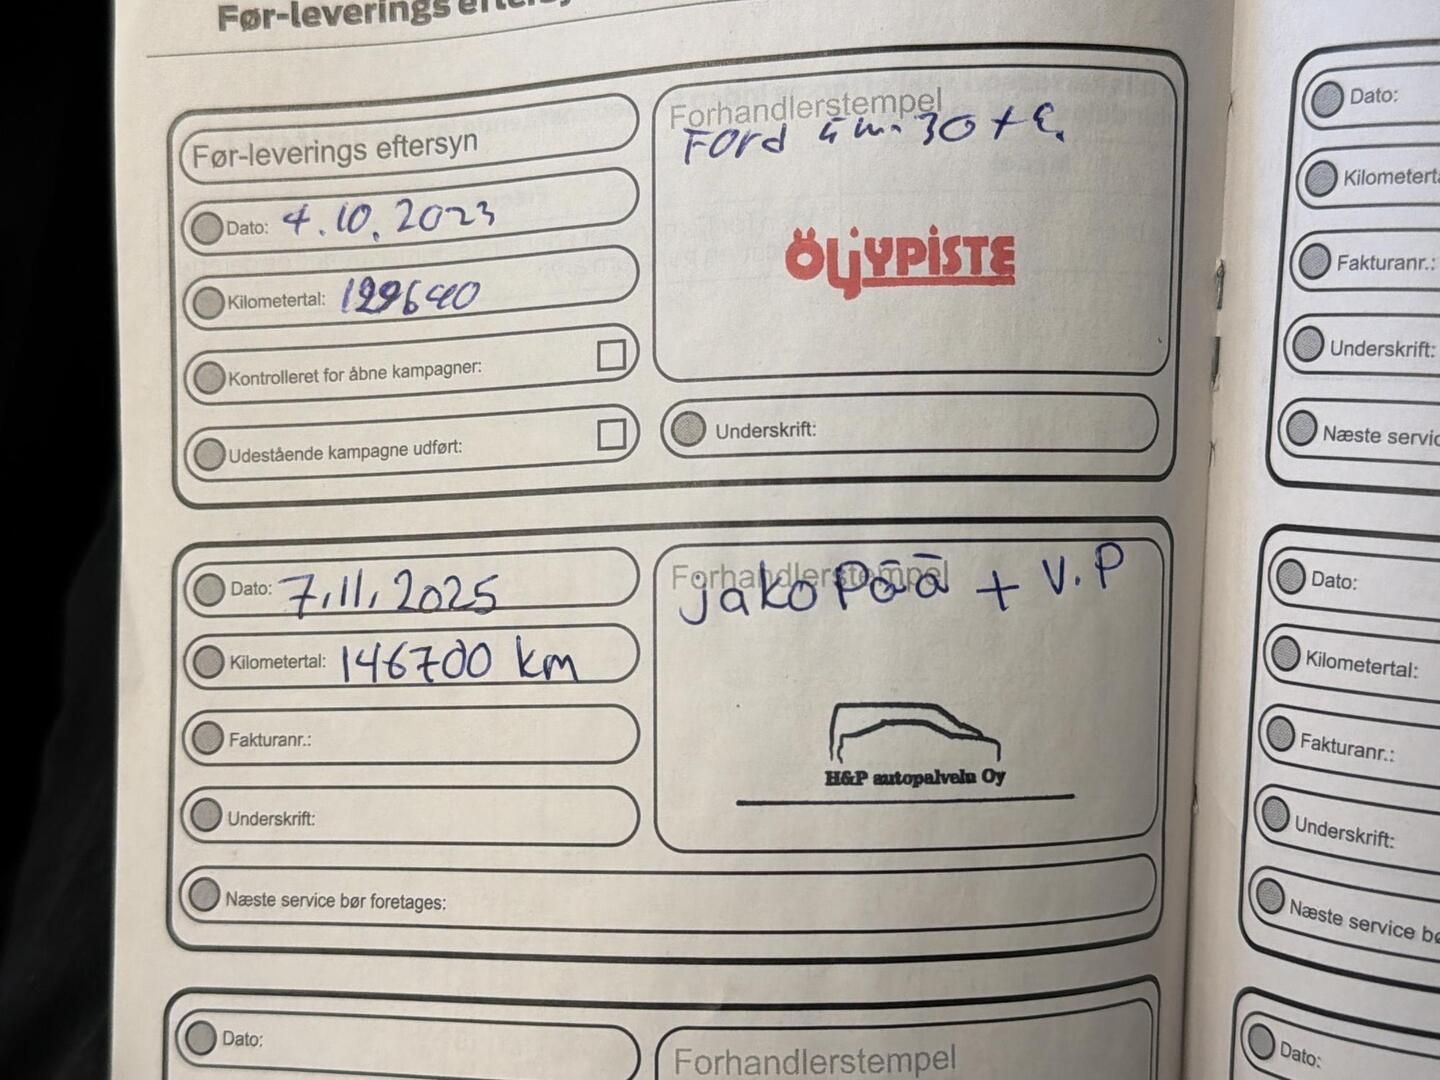 Før-leverings eftersy
Før-leverings eftersyn
Dato: 4.10.2023
Kilometertal: 129640
Kontrolleret for åbne kampagner:
Udestående kampagne udført:
Forhandlerstempel
Ford 30 +
ÖLJYPISTE
Underskrift:
Dato: 7.11.2025
Kilometertal: 146700 km
Fakturanr.:
Underskrift:
Næste service bør foretages:
Forhandlerstempel
jakopää + V.P
H&P autopalvelu Oy
Dato:
Forhandlerstempel
Dato:
Kilometerta
Fakturanr.:
Underskrift:
Næste servic
Dato:
Kilometertal:
Fakturanr.:
Underskrift:
Næste service bø
Dato: